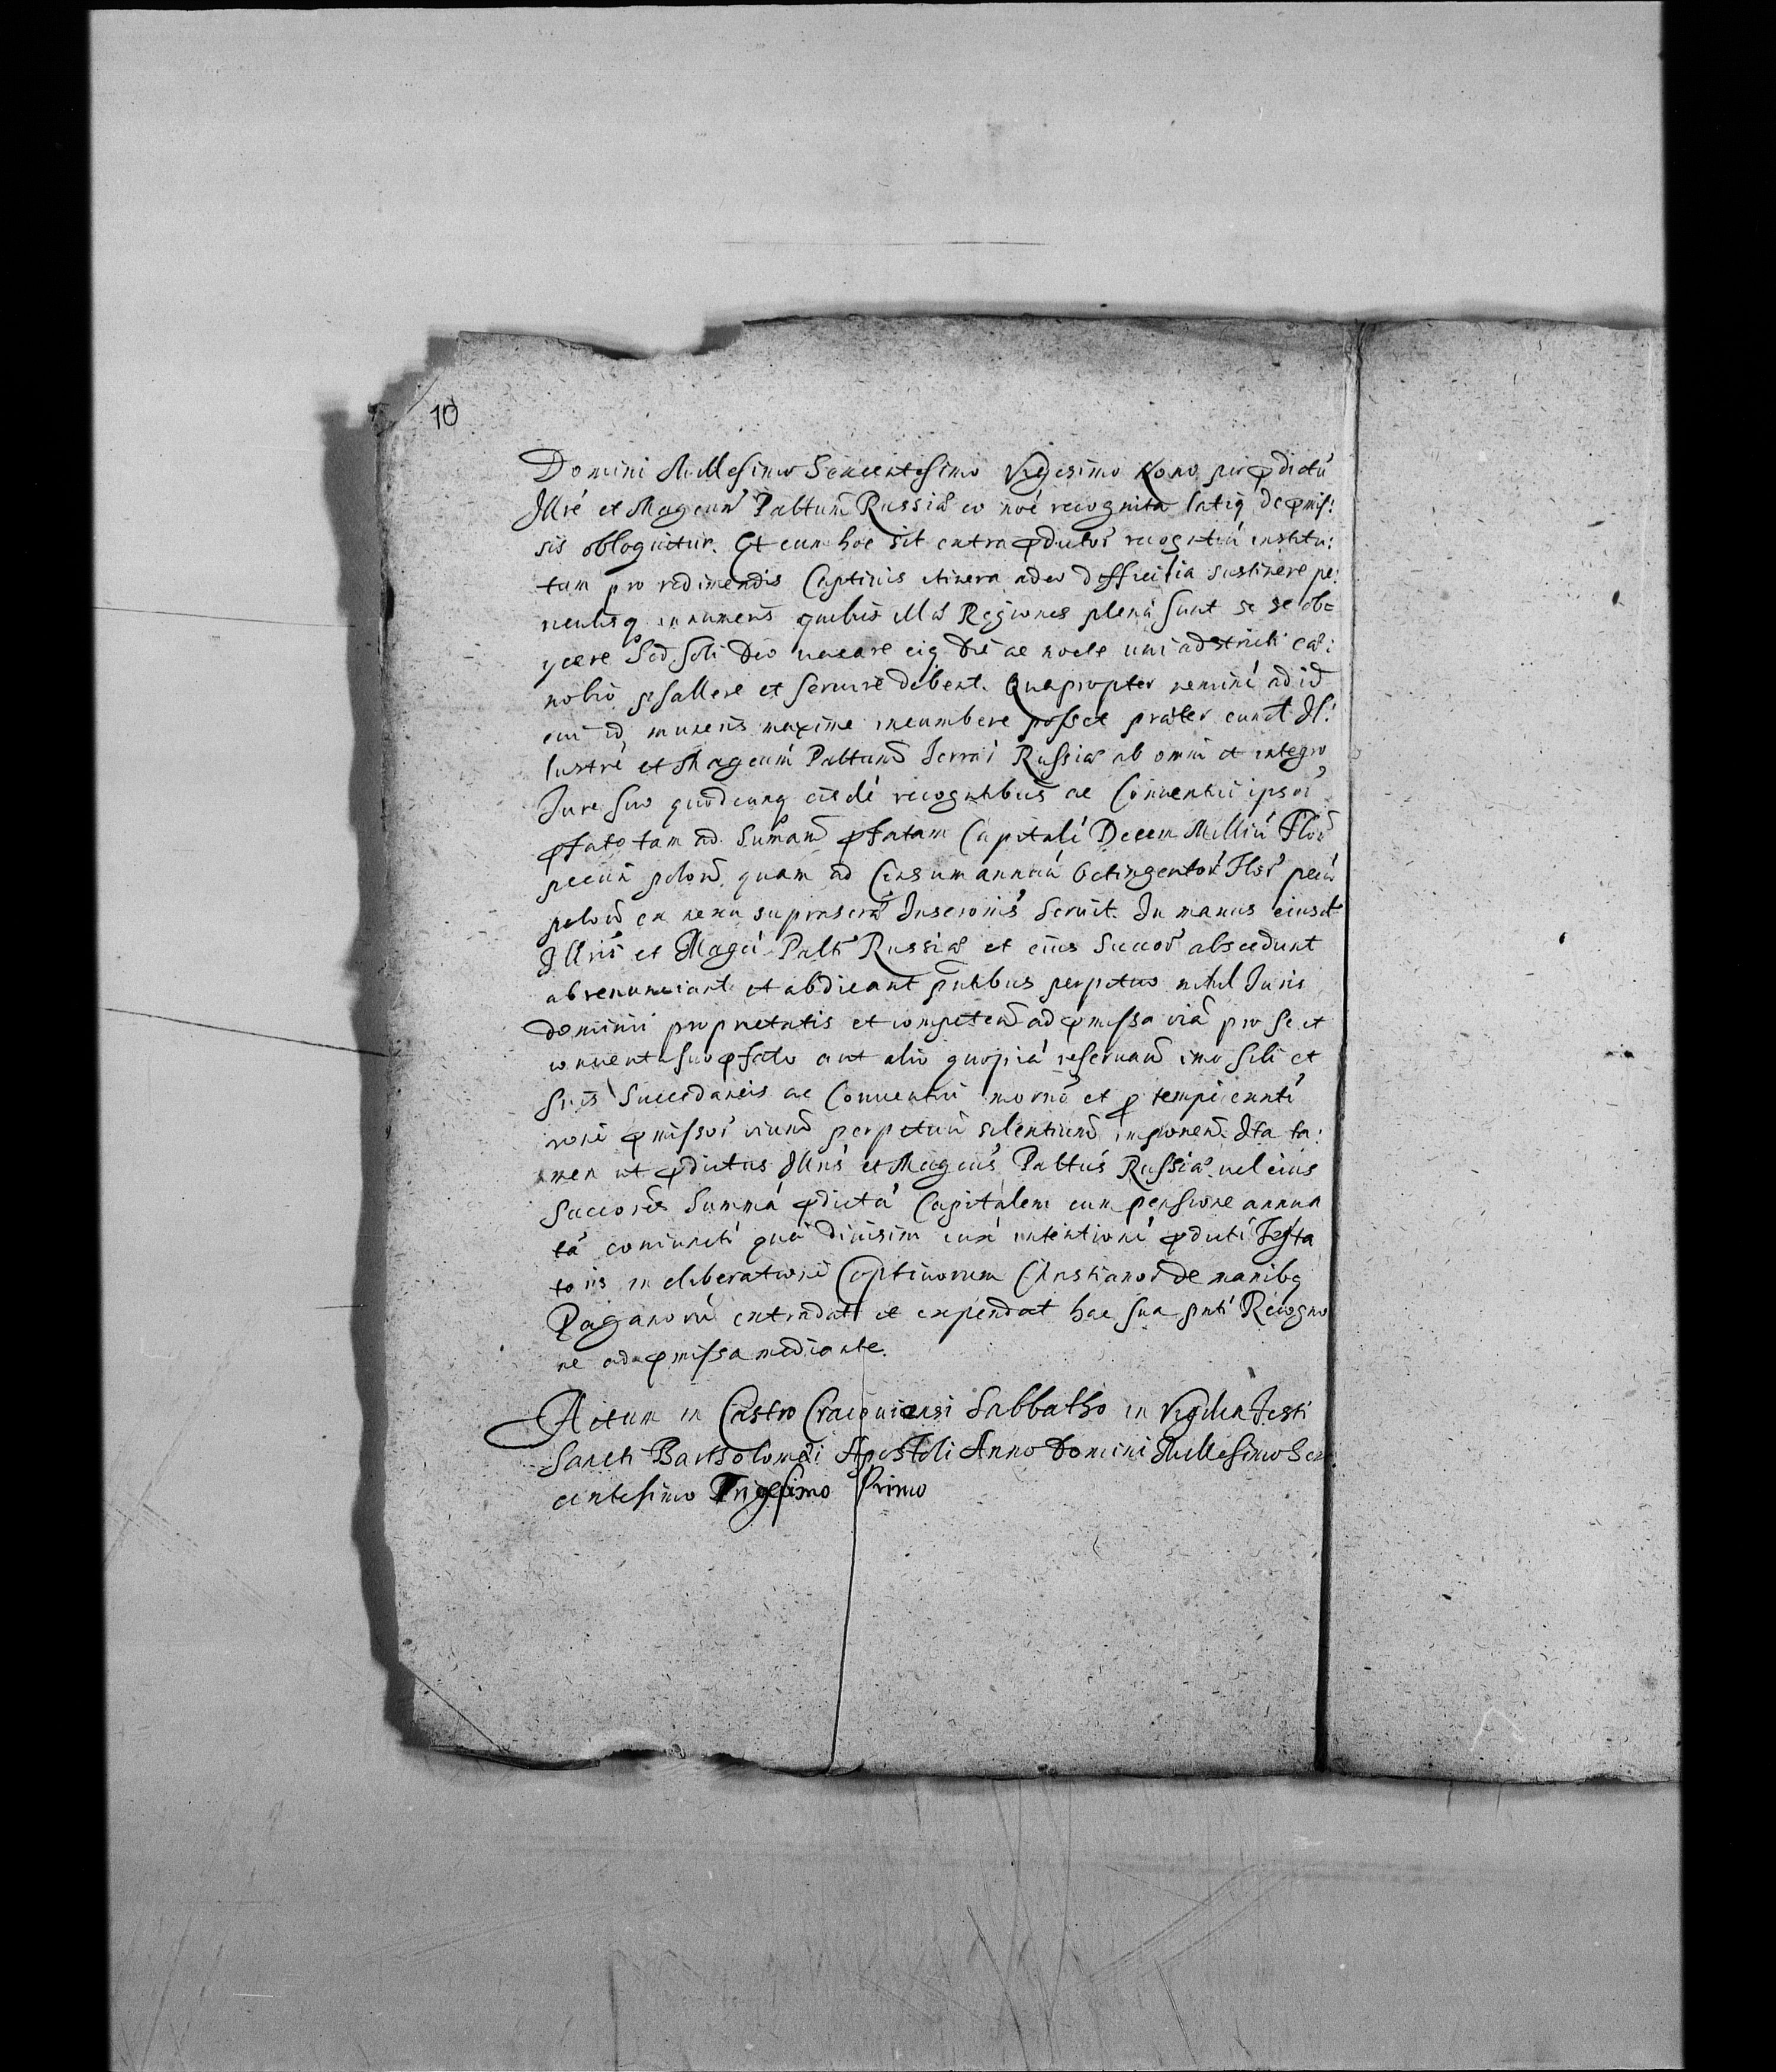 10
Domini Millesimo Sexcentesimo Vigesimo Nono per p̱dictū
Illrē et Magcum̄ Paltum̄ Russiæ eo noē recognita latiq depmis:
sis obloquitur. Et cum hoc sit extra p̱dictor̄ recogntiū institu:
tum pro redimendis Captiuis itinera adeo difficilia sustinere pe:
riculisq innumeris quibus illæ Regiones plenæ sunt se se ob=
ycere Sed soli Deo uacare eiq die ac nocte uni adstricti cæ:
nobio psallere et seruire debent. Quapropter nemini ad id
cui id muneris maxime incumbere posset præter eund Il:
lustrē et Magcum̄ Paltum̄ Terrar̄ Russiæ ab omni et integro
Jure suo quodcunq eisdē recogntibus ac Conuentui ipsor̄
p̱fato tam ad Sumam̄ p̱fatam Capitalē Decem Milliū Flor̄
pecuæ polon̄. quam ad Censum annuū Octingentor̄ Flor̄ pecūæ
polon̄ ex nexu suprascræ Inscronis seruit. In manus eiusd
Illris et Magci Palti Russiæ et eius Succor̄ abscedunt
abrenunciant et abdicant pntibus perpetuo nihil Juris
dominii proprietatis et competen̄ ad p̱missa oīa pro se et
conuentu suo p̱fato aut alio quopiā reseruan̄ imo sibi et
suis Succedaneis ac Conuentui morno et p̱ tempi eunti
rone p̱missor̄ oium̄ perpetuū silentium̄ imponen̄. Ita ta:
men ut p̱dictus Illris et Magcus Paltus Russiæ uel eius
Succores Summā p̱dictā Capitalem cum pensione annua
tā coniunctī quā diuisim iuxa intentionē p̱dicti Testa
toris in eliberationē Captiuorum Christianor̄ de manibq
Paganorū extradat et expendat hac sua pnti Recogno
ne ad p̱missa mediante.
Actum in Castro Cracouiensi Sabbatho in Vigilia Festi
Sancti Bartholomæi Apostoli Anno Domini Millesimo Sex
centesimo Trigesimo Primo